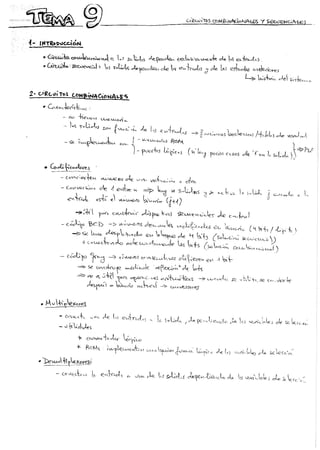 TEMA 9
CIRCUITOS COMBINACIONALES Y SECUENCIALES
1- INTRODUCCIÓN
• Circuito combinacional: las salidas dependen exclusivamente de las entradas
• Circuito secuencial: las salidas dependen de las entradas y de los estados anteriores
historia del sistema
2- CIRCUITOS COMBINACIONALES
• Características:
- no tienen memoria
- las salidas son función de las entradas → funciones booleanas / tablas de verdad
- se implementan con
- memorias ROM
- puertas lógicas (si hay pocos casos de la salida)
• Codificadores:
- convierten números de un sistema a otro
- conversión de entrada hay salidas y se activa la salida cuando a la
entrada está el número binario
→ útil para construir dispositivos secuenciales de control
- código BCD → números decimales codificados en binario (4 bits / dígito)
→ se hace desplazando en bloques de 4 bits (solución secuencial)
o convirtiendo los bits (solución combinacional)
- código Gray → números consecutivos difieren en 1 bit
→ se construye mediante reflexión de bits
→ no es útil para operaciones aritméticas → cuando se utiliza se convierte
después a binario natural → conversores
• Multiplexores
- conecta una de las entradas a la salida, dependiendo de las variables de selección
- utilidades
* conmutador lógico
* ROMs implementan cualquier función lógica de las variables de selección
• Demultiplexores
- conectan la entrada a una de las salidas dependiendo de las variables de selección